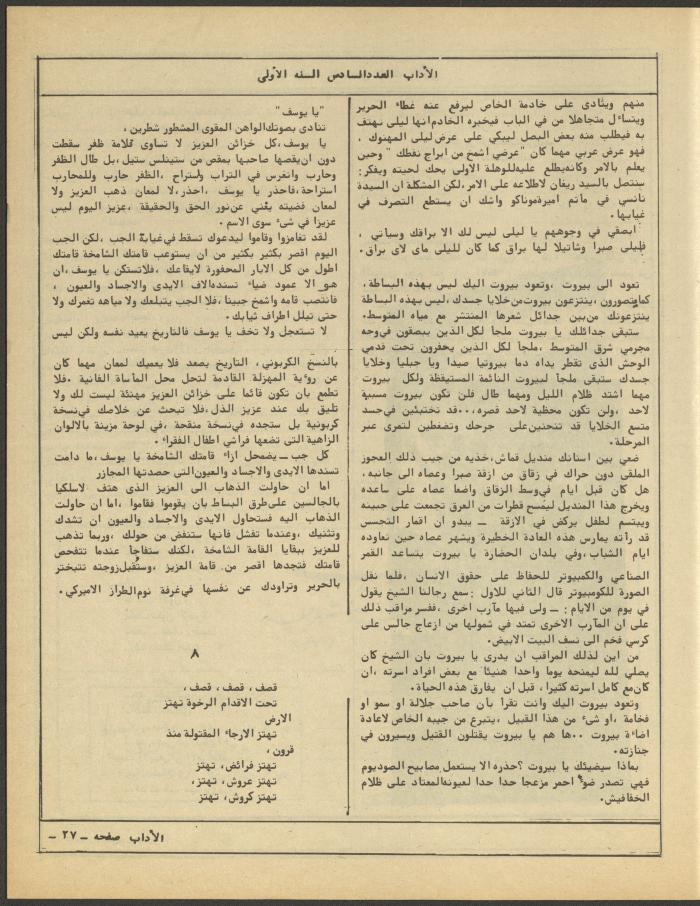 الآداب العدد السادس السنه الأولى
منهم وينادى على خادمة الخاص ليرفع عنه غطاء الحرير
ويتساءل متجاهلا من في الباب فيخبره الخادم انها ليلى بهتف
به فيطلب منه بعض البصل ليبكي على عرض ليلى المهتوك ،
فهو عرض عربي مهما كان "عرضي اشمخ من ابراج نفطك " وحين
يعلم بالامر وكانه يطلع عليه للوهلة الاولى يحك لحيته ويفكر:
سنتصل بالسيد ريغان لاطلاعه على الامر، لكن المشكلة ان السيدة
نانسي في ماتم اميرة موناكو واشك ان يستطع التصرف في
غيابها .
ابصقي في وجوههم يا ليلى ليس لك الا براقك وسياتي ،
فليلى صبرا وشاتيلا لها براق كما كان لليلى ماى لاى براق .
تعود الى بيروت ، وتعود بيروت اليك ليس بهذه البساطة ،
كما يتصورون ، ينتزعون بيروت من خلايا جسدك ، ليس بهذه البساطة
ينتزعونك من بين جدائل شعرها المنتشر مع مياه المتوسط .
ستبقى جدائلك يا بيروت ملجأ لكل الذين يبصقون في وجه
مجرمي شرق المتوسط ، ملجأ لكل الذين يحفرون تحت قدمي
الوحش الذى تقطر يداه دما بيروتيا صيدا ويا جبليا وخلايا
جسدك ستبقى ملجأ لبيروت النائمة المستيقظة ولكل بيروت
مهما اشتد ظلام الليل ومهما طال فلن تكون بيروت مسبية
لاحد ، ولن تكون محظية لاحد قصره ، ٠٠ قد تختبئين في جسد
متسع الخلايا قد تنحنين على جرحك وتضغطين لتمرى عبر
المرحلة .
ضعي بين اسنانك منديل قماش ، خذيه من جيب ذلك العجوز
الملقى دون حراك في زقاق من ازقة صبرا وعصاه الى جانبه ،
هل كان قبل ايام في وسط الزقاق واضعا عصاه على ساعده
ويخرج هذا المنديل ليمسح قطرات من العرق تجمعت على جبينه
ويبتسم لطفل يركض في الازقة ــ يبدو ان اقمار التجسس
قد رأته يمارس هذه العادة الخطيرة ويشهر عصاه حين تعاوده
ايام الشباب ، وفي بلدان الحضارة يا بيروت يتساعد القمر
الصناعي والكمبيوتر للحفاظ على حقوق الانسان ، فلما نقل
الصورة للكومبيوتر قال الثاني للاول : سمع رجالنا الشيخ يقول
في يوم من الايام : ــ ولى فيها مآرب اخرى ، ففسر مراقب ذلك
على ان المآرب الاخرى تمتد في شمولها من ازعاج جالس على
كرسي فخم الى نسف البيت الابيض .
من اين لذلك المراقب ان يدرى يا بيروت بان الشيخ كان
يصلي لله ليمنحه يوما واحدا هنيئا مع بعض افراد اسرته ، ان
كان مع كامل اسرته كثيرا ، قبل ان يفارق هذه الحياة .
وتعود بيروت اليك وانت تقرأ بأن صاحب جلالة او سمو او
فخامة ، او شىء من هذا القبيل ، يتبرع من جيبه الخاص لاعادة
اضاءة بيروت ٠٠ ها هم يا بيروت يقتلون القتيل ويسيرون في
جنازته .
بماذا سيضيئك يا بيروت ؟ حذره الا يستعمل مصابيح الصوديوم
فهي تصدر ضوءً احمر مزعجا حدا حدا لعيونه المعتاد على ظلام
الخفافيش .
"يا يوسف"
تنادى بصوتك الواهن المقوى المشطور شطرين ،
يا يوسف ، كل خزائن العزيز لا تساوى قلامة ظفر سقطت
دون ان يقصها صاحبها بمقص من ستينلس ستيل ، بل طال الظفر
وحارب وانغرس في التراب واستراح ، الظفر حارب وللمحارب
استراحة ، فاحذر يا يوسف ، احذر ، لا لمعان ذهب العزيز ولا
لمعان فضيته يغني عن نور الحق والحقيقة ، عزيز اليوم ليس
عزيزا في شىء سوى الاسم .
لقد تغامزوا وقاموا ليدعوك تسقط في غيابة الجب ، لكن الجب
اليوم اقصر بكثير بكثير من ان يستوعب قامتك الشامخة قامتك
اطول من كل الابار المحفورة لايقاعك ، فلا تستكن يا يوسف ، ان
هي الا عمود ضياء تسنده الاف الايدى والاجساد والعيون ،
فانتصب قامه واشمخ جبينا ، فلا الجب يتبلعك ولا مياهه تغمرك ولا
حتى تبلل اطراف ثيابك .
لا تستعجل ولا تخف يا يوسف فالتاريخ يعيد نفسه ولكن ليس
بالنسخ الكربوني ، التاريخ يصعد فلا يعميك لمعان مهما كان
عن رؤية المهزلة القادمة لتحل محل المأساة الفانية ، فلا
تطمع بان تكون قائما على خزائن العزيز مهنئة ليست لك ولا
تليق بك عند عزيز الذل ، فلا تبحث عن خلاصك في نسخة
كربونية بل ستجده في نسخة منقحة ، في لوحة مزينة بالالوان
الزاهية التى تضعها فراشي اطفال الفقراء .
كل جب ــ يضمحل ازاء قامتك الشامخة يا يوسف ، ما دامت
تسندها الايدى والاجساد والعيون التى حصدتها المجازر
اما ان حاولت الذهاب الى العزيز الذى هتف لاسلكيا
بالجالسين على طرق البساط بأن يقوموا فقاموا ، اما ان حاولت
الذهاب اليه فستحاول الايدى والاجساد والعيون ان تشدك
وتثنيك ، وعندما تفشل فانها ستنفض من حولك ، وربما تذهب
للعزيز ببقايا القامة الشامخة ، لكنك ستفاجأ عندما تتفحص
قامتك فتجدها اقصر من قامة العزيز ، وستقبل زوجته تتبختر
بالحرير وتراودك عن نفسها في غرفة نوم الطراز الاميركي .
٨
قصف ، قصف ، قصف ،
تحت الاقدام الرخوة تهتز
الارض
تهتز الارجاء المقتولة منذ
قرون ،
تهتز فرائض ، تهتز
تهتز عروش ، تهتز ،
تهتز كروش ، تهتز
الآداب صفحه ــ ٢٧ ــ